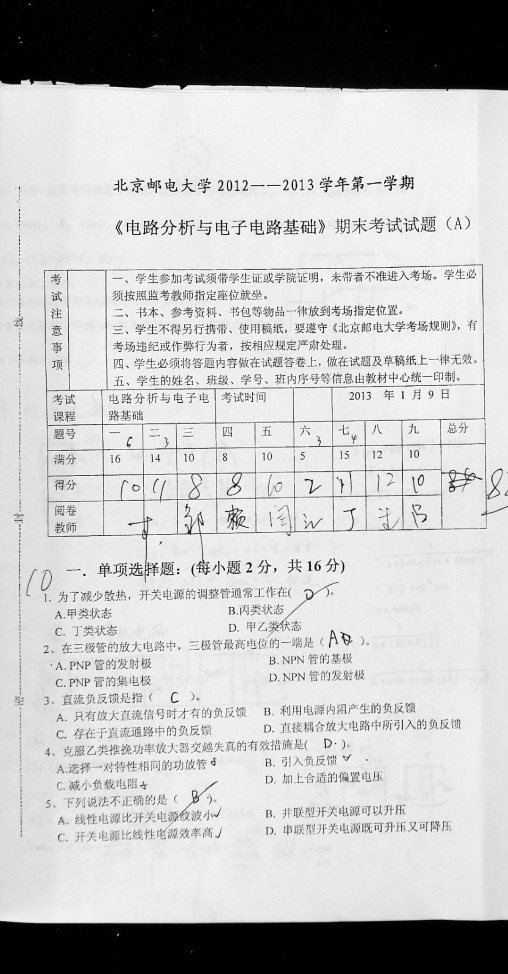 北京邮电大学2012——2013学年第一学期
《电路分析与电子电路基础》期末考试试题（A）
考试注意事项
一、学生参加考试须带学生证或学院证明，未带者不准进入考场。学生必
须按照监考教师指定座位就坐。
二、书本、参考资料、书包等物品一律放到考场指定位置。
三、学生不得另行携带、使用稿纸，要遵守《北京邮电大学考场规则》，有
考场违纪或作弊行为者，按相应规定严肃处理。
四、学生必须将答题内容做在试题答卷上，做在试题及草稿纸上一律无效。
五、学生的姓名、班级、学号、班内序号等信息由教材中心统一印制。
考试课程 电路分析与电子电路基础 考试时间 2013 年 1 月 9 日
题号 一 二 三 四 五 六 七 八 九 总分
6 3 3 4
满分 16 14 10 8 10 5 15 12 10
得分 10 11 8 8 10 2 11 12 10
阅卷教师
10
一．单项选择题：(每小题 2 分，共 16 分)
1. 为了减少散热，开关电源的调整管通常工作在( D )。
A.甲类状态 B.丙类状态
C. 丁类状态 D. 甲乙类状态
2、在三极管的放大电路中，三极管最高电位的一端是（ A ）。
A. PNP 管的发射极 B. NPN 管的基极
C. PNP 管的集电极 D. NPN 管的发射极
3、直流负反馈是指（ C ）。
A. 只有放大直流信号时才有的负反馈 B. 利用电源内阻产生的负反馈
C. 存在于直流通路中的负反馈 D. 直接耦合放大电路中所引入的负反馈
4、克服乙类推挽功率放大器交越失真的有效措施是( D )。
A.选择一对特性相同的功放管 B. 引入负反馈
C. 减小负载电阻 D. 加上合适的偏置电压
5、下列说法不正确的是（ B ）。
A. 线性电源比开关电源纹波小 B. 并联型开关电源可以升压
C. 开关电源比线性电源效率高 D. 串联型开关电源既可升压又可降压